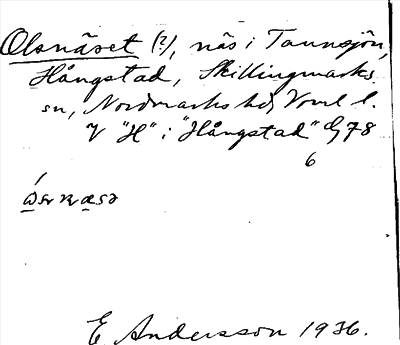 Olsnäset (?), näs i Tannsjön,
Hångstad, Skillingmarks
sn, Nordmarks hd, Vrml l.
V "H" i "Hångstad" G 78
6
E Andersson 1936.